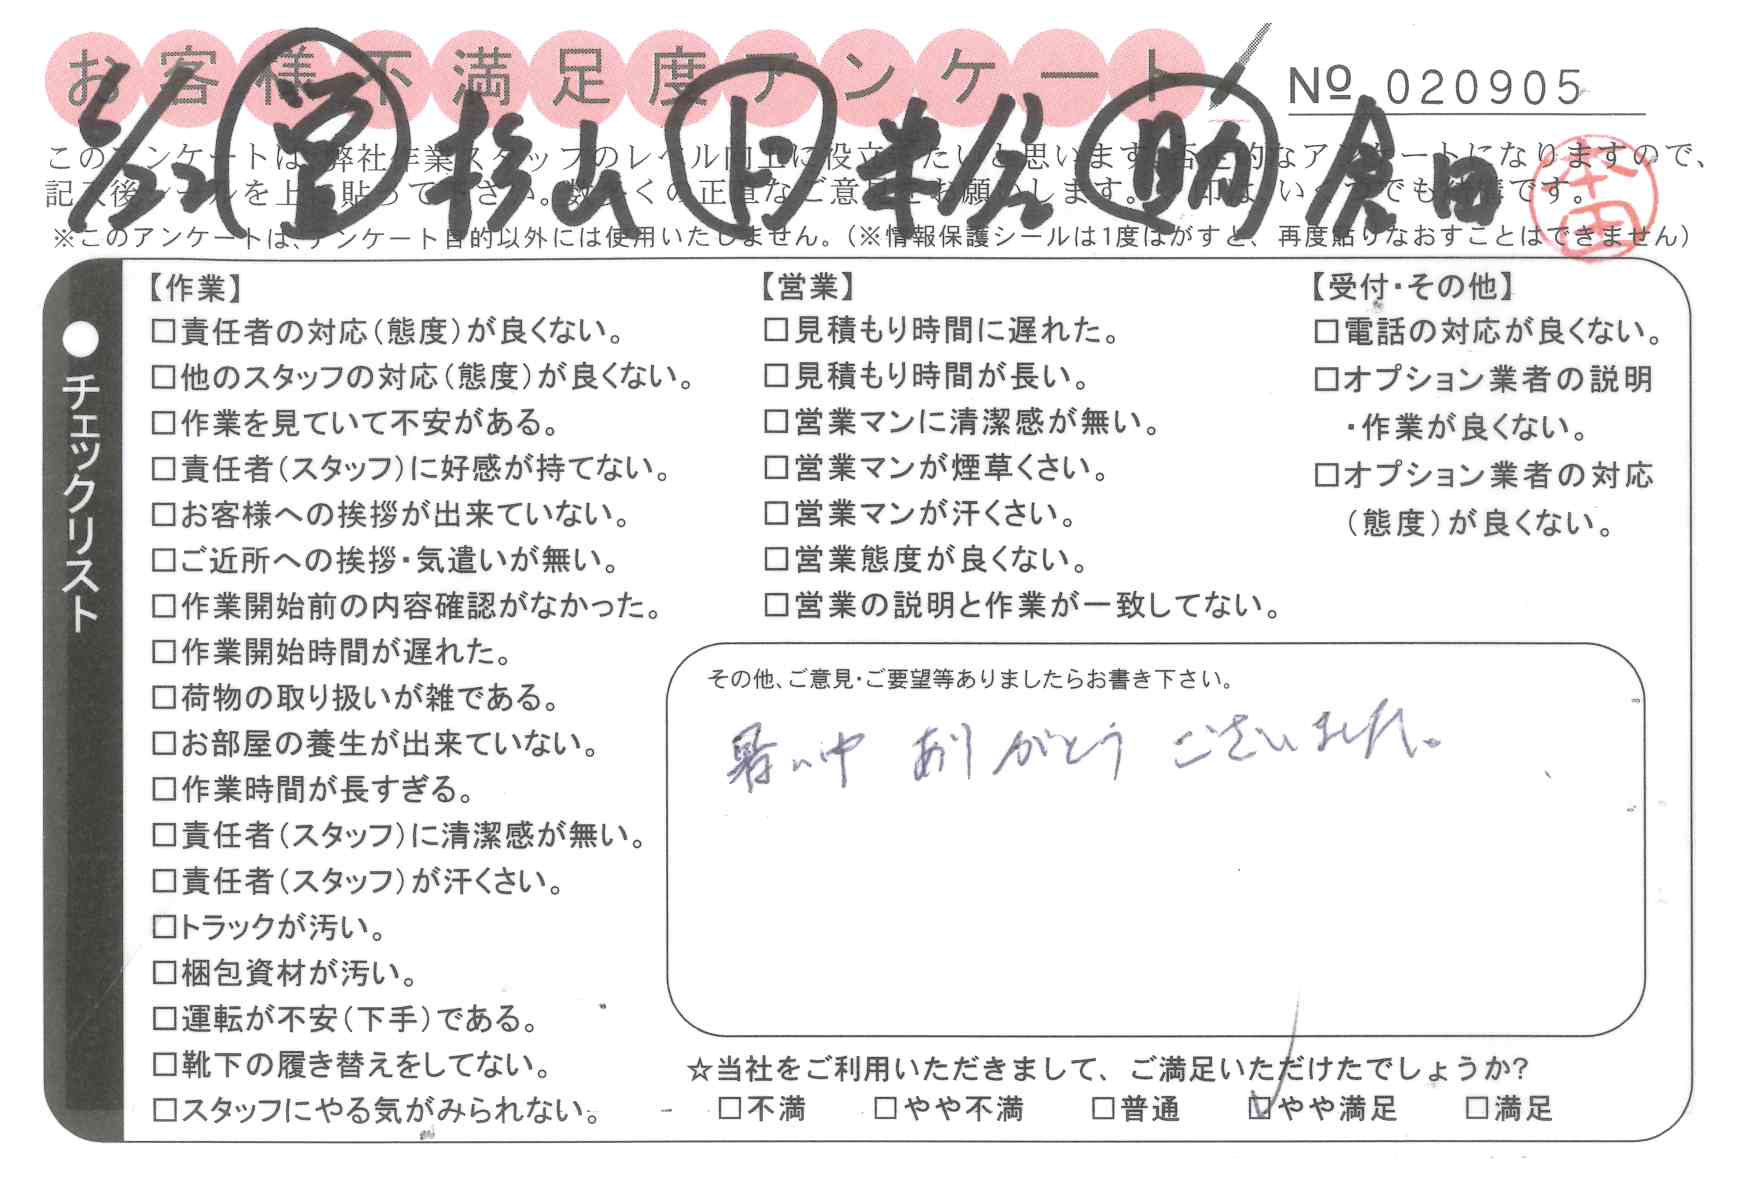 お客様不満足度アンケート
№ 020905
堂 杉山 ト 米倉 助 倉田
本田
このアンケートは、弊社作業スタッフのレベル向上に役立てたいと思います。否定的なアンケートになりますので、
記入後シールを上に貼って下さい。数多くの正直なご意見をお願いします。
※このアンケートは、アンケート目的以外には使用いたしません。(※情報保護シールは1度はがすと、再度貼りなおすことはできません)
●チェックリスト
【作業】
□責任者の対応(態度)が良くない。
□他のスタッフの対応(態度)が良くない。
□作業を見ていて不安がある。
□責任者(スタッフ)に好感が持てない。
□お客様への挨拶が出来ていない。
□ご近所への挨拶・気遣いが無い。
□作業開始前の内容確認がなかった。
□作業開始時間が遅れた。
□荷物の取り扱いが雑である。
□お部屋の養生が出来ていない。
□作業時間が長すぎる。
□責任者(スタッフ)に清潔感が無い。
□責任者(スタッフ)が汗くさい。
□トラックが汚い。
□梱包資材が汚い。
□運転が不安(下手)である。
□靴下の履き替えをしてない。
□スタッフにやる気がみられない。
【営業】
□見積もり時間に遅れた。
□見積もり時間が長い。
□営業マンに清潔感が無い。
□営業マンが煙草くさい。
□営業マンが汗くさい。
□営業態度が良くない。
□営業の説明と作業が一致してない。
【受付・その他】
□電話の対応が良くない。
□オプション業者の説明
・作業が良くない。
□オプション業者の対応
(態度)が良くない。
その他、ご意見・ご要望等ありましたらお書き下さい。
暑い中 ありがとう ございました。
☆当社をご利用いただきまして、ご満足いただけたでしょうか?
□不満 □やや不満 □普通 ☑やや満足 □満足